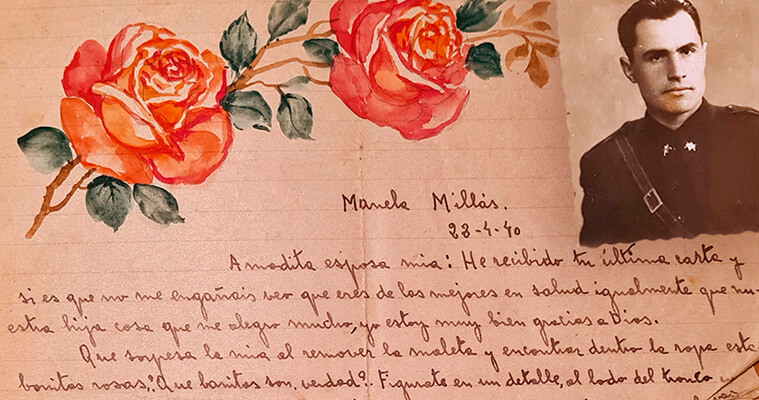 Manela Millás.
22-4-40
Amadita esposa mia: He recibido tu última carta y
si es que no me engañais veo que eres de las mejores en salud igualmente que nu-
estra hija cosa que me alegro mucho, yo estoy muy bien gracias a Dios.
Que sorpesa la mia al remover la maleta y encontrar dentro la ropa esta
bonitas rosas,? Que bonitas son, verdad?. Figurate en un detalle, al lado del tronco